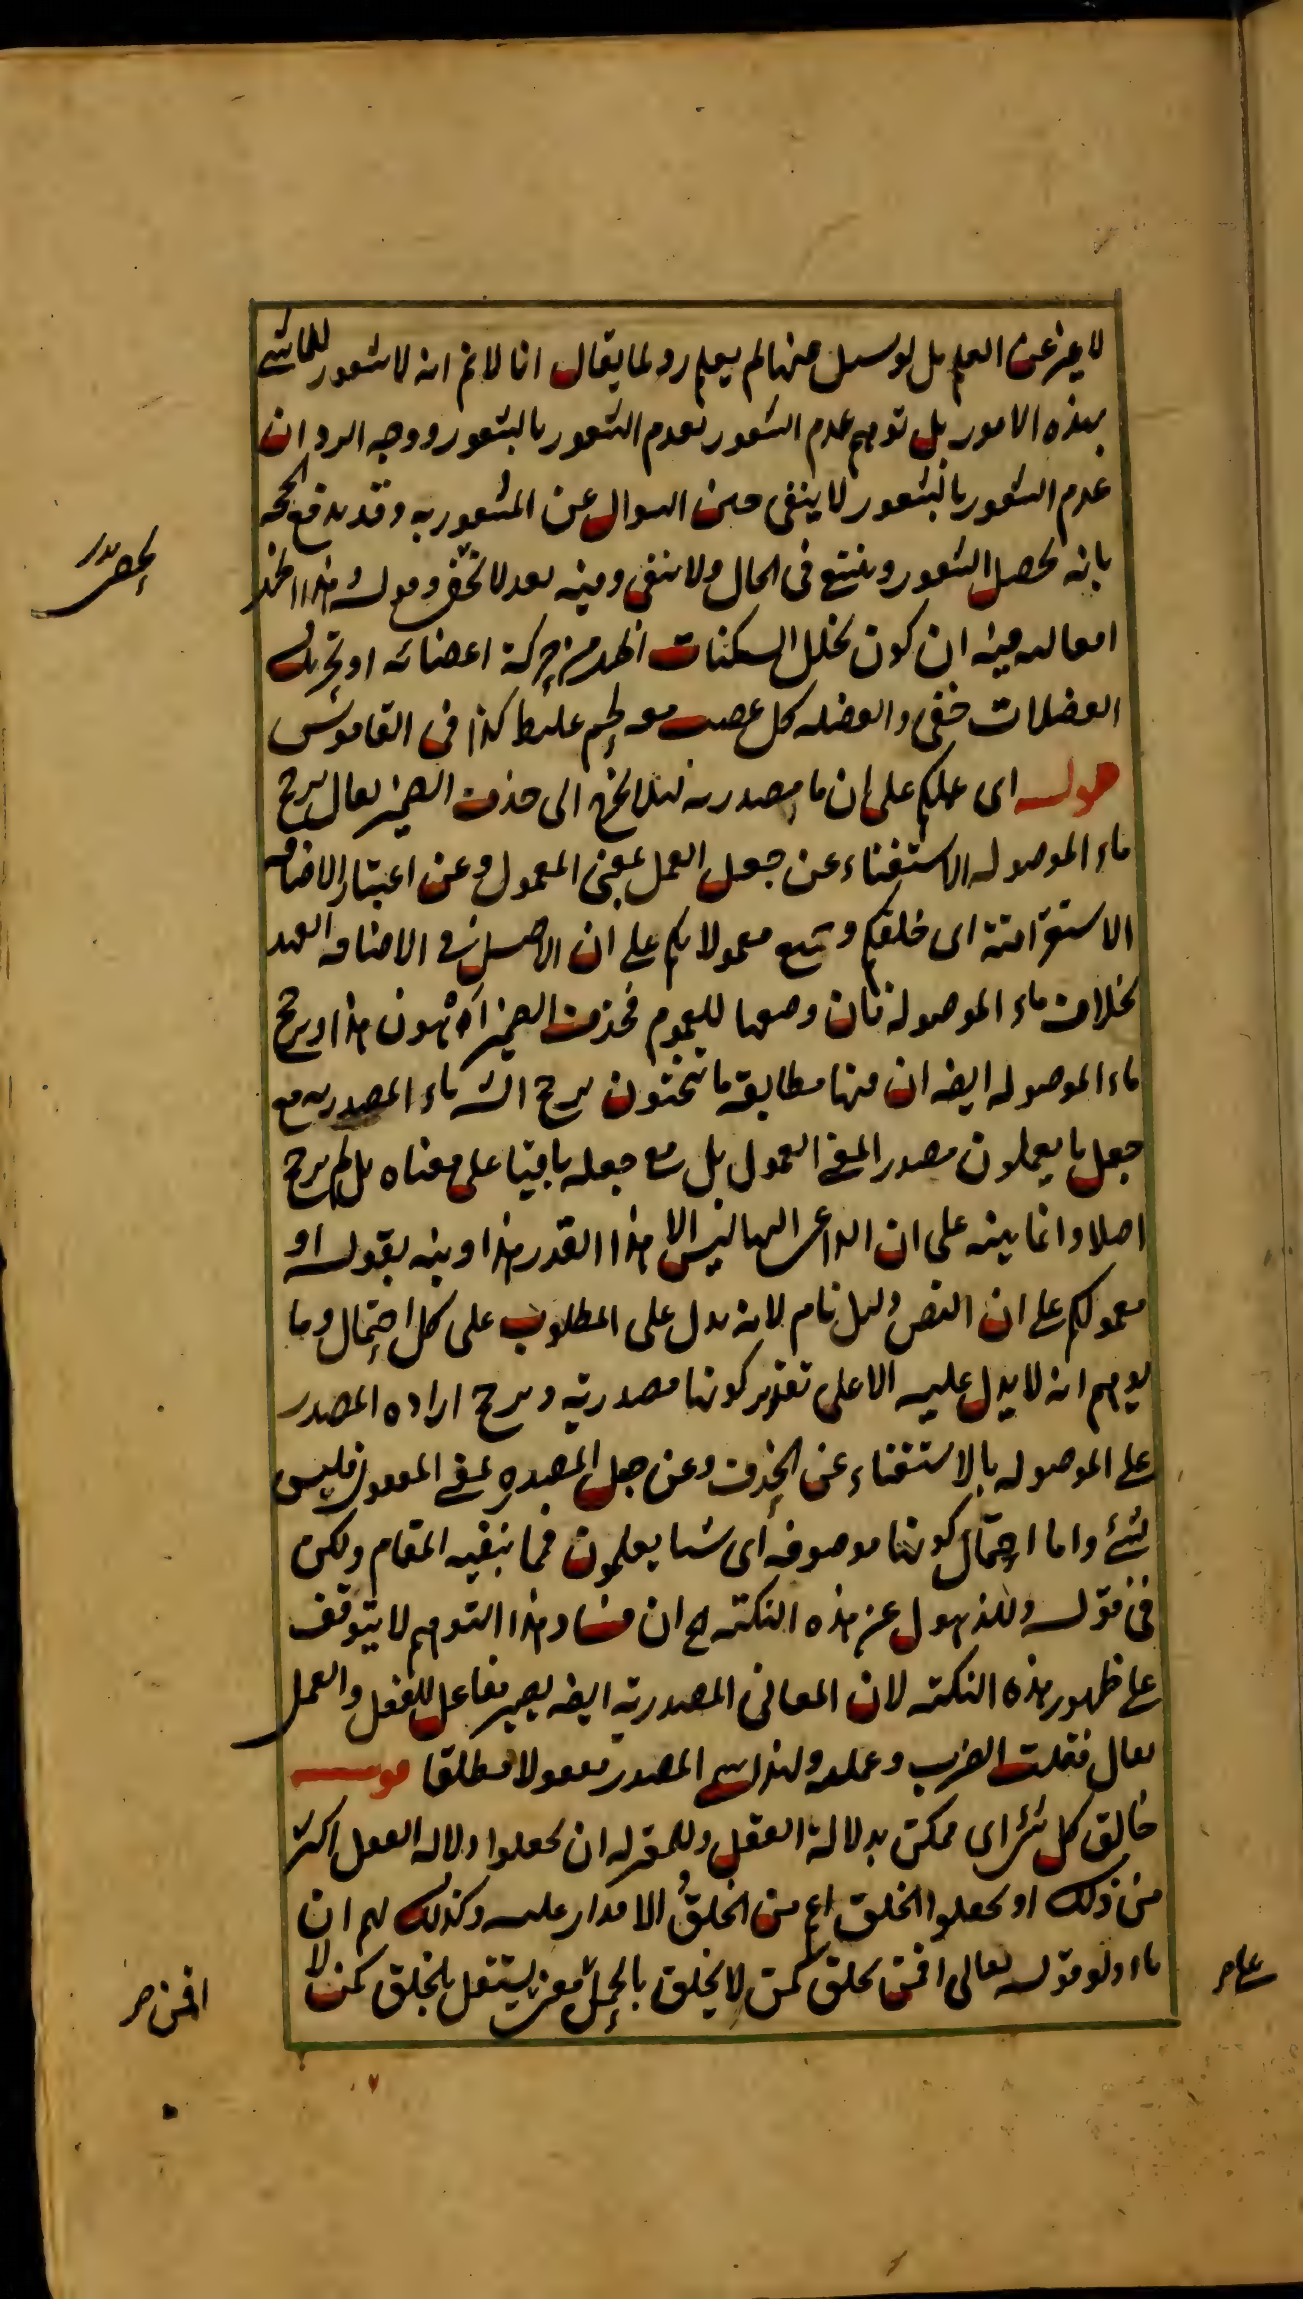 لا عن العلم بل لو سئل عنها لم يعلم رد لما يقال انا لا نم انه لا شعور للماشي
بهذه الامور بل توهم عدم الشعور لعدم الشعور بالشعور ووجه الرد ان
عدم الشعور بالشعور لا ينفي حين السوال عن المشعور به وقد يدفع
بانه يحصل الشعور وينتفي في الحال ولا يبقى وفيه بعد لا يخفى وقوله هذا
افعاله فيه ان كون تخلل السكنات اظهر من حركة اعضائه او تحريك
العضلات خفي والعضله كل عصب معه لحم غليظ كذا في القاموس
قوله اى عملكم على ان ما مصدريه لئلا يحتاج الى حذف الضمير يقال يرجح
ماء الموصوله الاستغناء عن جعل العمل بمعنى المعمول وعن اعتبار الاضافه
الاستغراقية اى خلقكم وجميع معمولاتكم على ان الاصل في الاضافه العهد
بخلاف ماء الموصوله فان وضعها للعموم فحذف الضمير اهون هذا ويرجح
ماء الموصوله ايضه ان فيها مطابقة ما تنحتون يرجح الشه ماء المصدريه مع
جعل ما يعملون مصدرا بمعنى المعمول بل مع جعله باقيا على معناه بل لم يرجح
اصلا وانما بينه على ان الداعى اليها ليس الا هذا القدر هذا ونبه بقوله او
معمولكم على ان النص دليل تام لانه يدل على المطلوب على كل احتمال وما
يوهم انه لا يدل عليه الا على تقدير كونها مصدرية ويرجح اراده المصدر
على الموصوله بالاستغناء عن الحذف وعن جعل المصدر بمعنى المفعول فليس
بشئ واما احتمال كونها موصوفه اى شيا يعملون فمما ينفيه المقام ولكن
في قوله وللذهول عن هذه النكته ح ان فساد هذا التوهم لا يتوقف
على ظهور هذه النكته لان المعاني المصدرية ايضه يصير مفاعل للفعل والعمل
يقال فعلت الضرب وعملته ولهذا سمي المصدر مفعولا مطلقا قوله
خالق كل شئ اى ممكن بدلالة العقل وللمعتزله ان يجعلوا دلاله العقل اكثر
من ذلك او يجعلوا الخلق اعم من الخلق الاقدار عليه وكذلك لهم ان
ماولو قوله تعالى افمن يخلق كمن لا يخلق بالجمل بمعنى يستقل بالخلق كمن لا